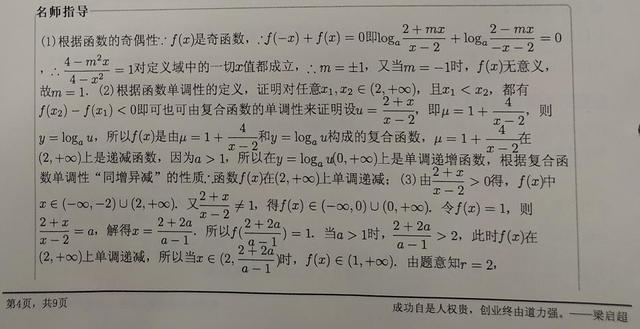 名师指导
(1)根据函数的奇偶性∵f(x)是奇函数，∴f(−x)+f(x)=0即log_a (2+mx)/(x−2) + log_a (2−mx)/(−x−2) = 0
，∴ (4−m²x)/(4−x²) = 1对定义域中的一切x值都成立，∴m=±1，又当m=−1时，f(x)无意义，
故m=1. (2)根据函数单调性的定义，证明对任意x₁,x₂∈(2,+∞)，且x₁<x₂，都有
f(x₂)−f(x₁)<0即可也可由复合函数的单调性来证明设u=(2+x)/(x−2)，即μ=1+4/(x−2)，则
y=log_a u，所以f(x)是由μ=1+4/(x−2)和y=log_a u构成的复合函数，μ=1+4/(x−2)在
(2,+∞)上是递减函数，因为a>1，所以在y=log_a u(0,+∞)上是单调递增函数，根据复合函
数单调性“同增异减”的性质∴函数f(x)在(2,+∞)上单调递减；(3)由(2+x)/(x−2)>0得，f(x)中
x∈(−∞,−2)∪(2,+∞). 又(2+x)/(x−2)≠1，得f(x)∈(−∞,0)∪(0,+∞). 令f(x)=1，则
(2+x)/(x−2)=a，解得x=(2+2a)/(a−1). 所以f((2+2a)/(a−1))=1. 当a>1时，(2+2a)/(a−1)>2，此时f(x)在
(2,+∞)上单调递减，所以当x∈(2,(2+2a)/(a−1))时，f(x)∈(1,+∞). 由题意知r=2，
第4页，共9页
成功自是人权贵，创业终由道力强。——梁启超